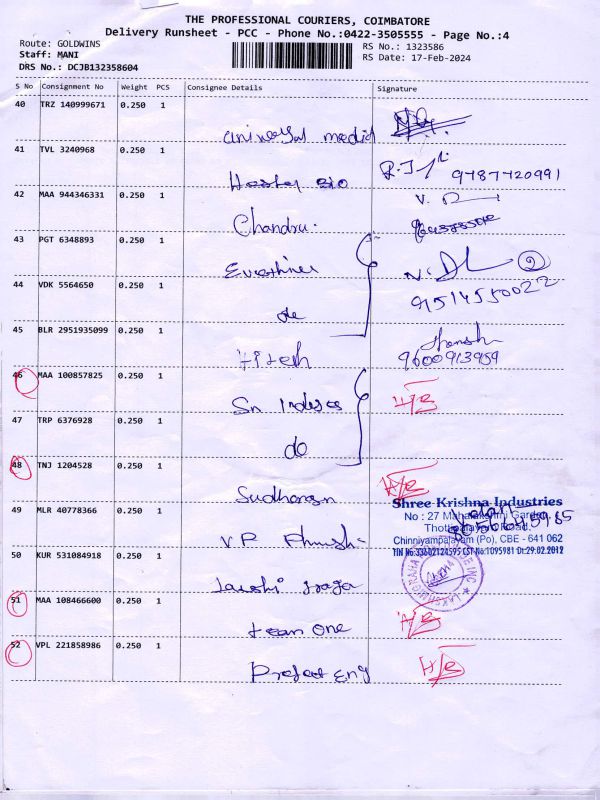 THE PROFESSIONAL COURIERS, COIMBATORE
Delivery Runsheet - PCC - Phone No.:0422-3505555 - Page No.:4
Route: GOLDWINS
RS No.: 1323586
Staff: MANI
RS Date: 17-Feb-2024
DRS No.: DCJB132358604
S No Consignment No Weight PCS Consignee Details Signature
40 TRZ 140999671 0.250 1
universal medical
41 TVL 3240968 0.250 1
Bio 9787720991
42 MAA 944346331 0.250 1
Chandru.
43 PGT 6348893 0.250 1
2
44 VDK 5564650 0.250 1
9514550022
do
45 BLR 2951935099 0.250 1
Hitesh 9600913959
46 MAA 100857825 0.250 1
H/S
47 TRP 6376928 0.250 1
do
48 TNJ 1204528 0.250 1
H/S
49 MLR 40778366 0.250 1
V.P
Shree Krishna Industries
No : 27 Mahalakshmi Garden,
Thottipalayam Road,
Chinniyampalayam (Po), CBE - 641 062
TIN No:33602124595 CST No:1095981 Dt:29.02.2012
50 KUR 531084918 0.250 1
51 MAA 108466600 0.250 1
team one H/S
52 VPL 221858986 0.250 1
Project Eng H/S